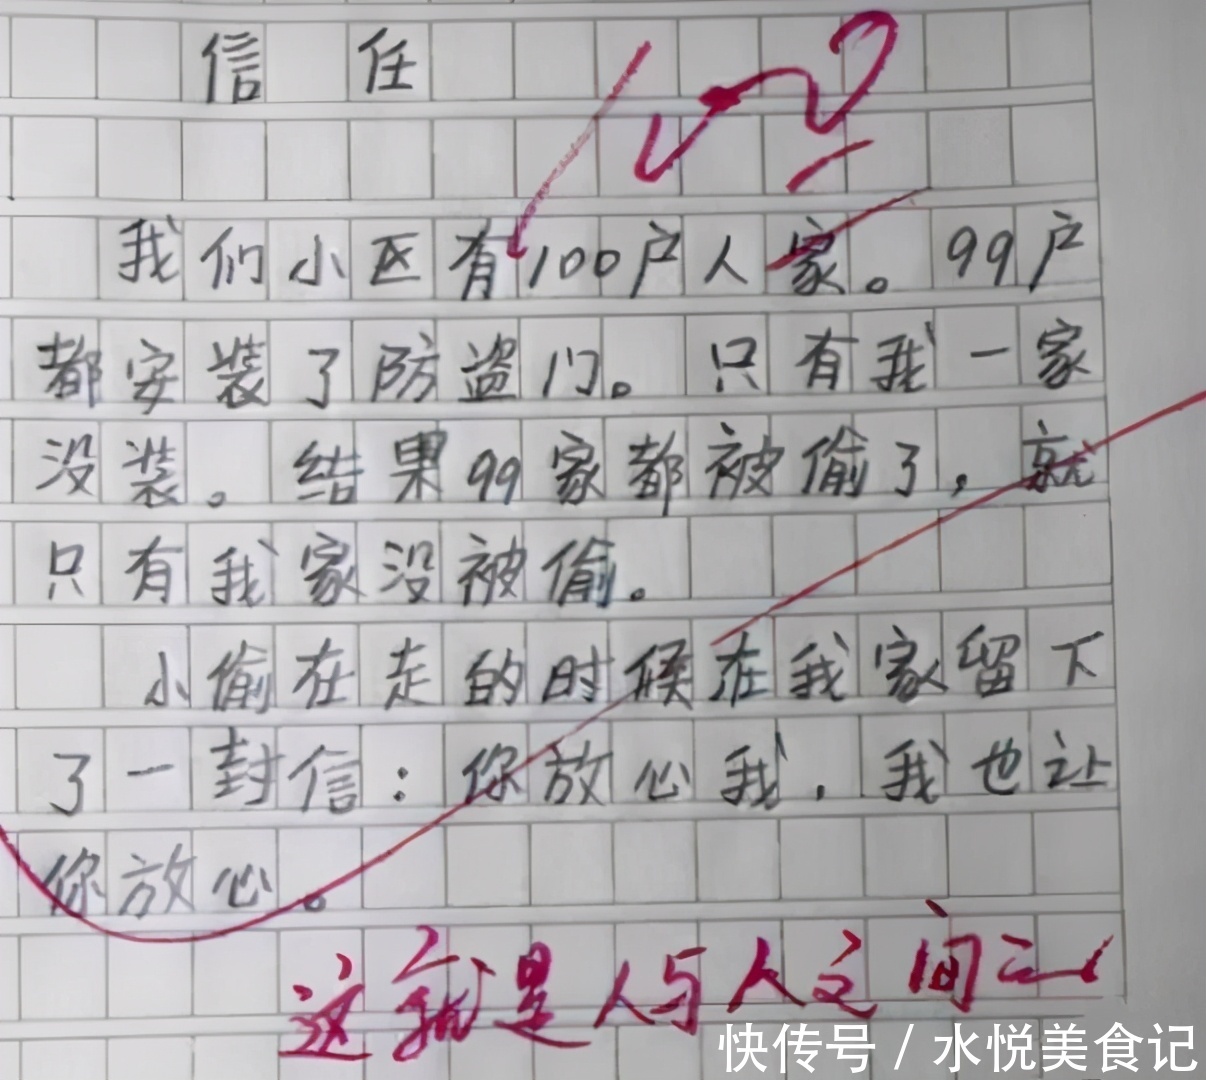 信任
我们小区有100户人家。99户
都安装了防盗门。只有我一家
没装。结果99家都被偷了，就
只有我家没被偷。
小偷在走的时候在我家留下
了一封信：你放心我，我也让
你放心。
这就是人与人之间
快传号／水悦美食记